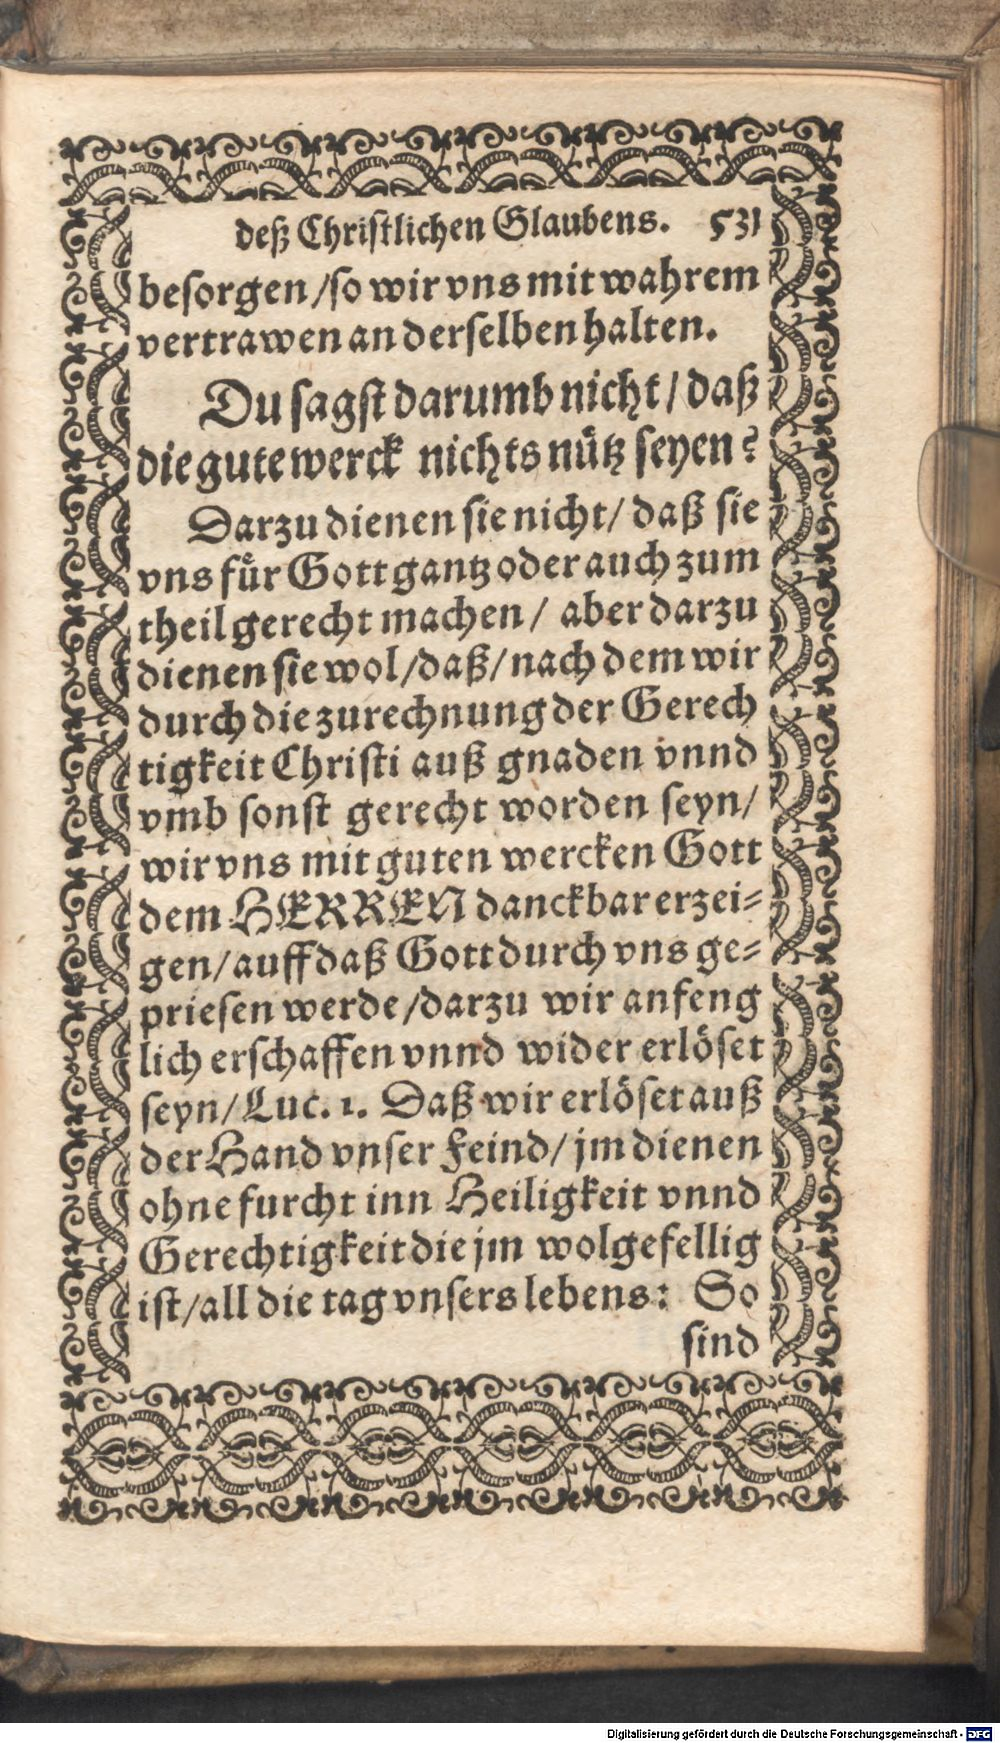 deß Christlichen Glaubens. 531
besorgen/so wir vns mit wahrem
vertrawen an derselben halten.
Du sagst darumb nicht/ daß
die gute werck nichts nütz seyen?
Darzu dienen sie nicht/ daß sie
vns für Gott gantz oder auch zum
theil gerecht machen/ aber darzu
dienen sie wol/daß/nach dem wir
durch die zurechnung der Gerech
tigkeit Christi auß gnaden vnnd
vmb sonst gerecht worden seyn/
wir vns mit guten wercken Gott
dem HERREN danckbar erzei-
gen/auff daß Gott durch vns ge-
priesen werde/darzu wir anfeng
lich erschaffen vnnd wider erlöset
seyn/ Luc. 1. Daß wir erlöset auß
der Hand vnser Feind/ jm dienen
ohne furcht inn Heiligkeit vnnd
Gerechtigkeit die jm wolgefellig
ist/all die tag vnsers lebens: So
sind
Digitalisierung gefördert durch die Deutsche Forschungsgemeinschaft - DFG